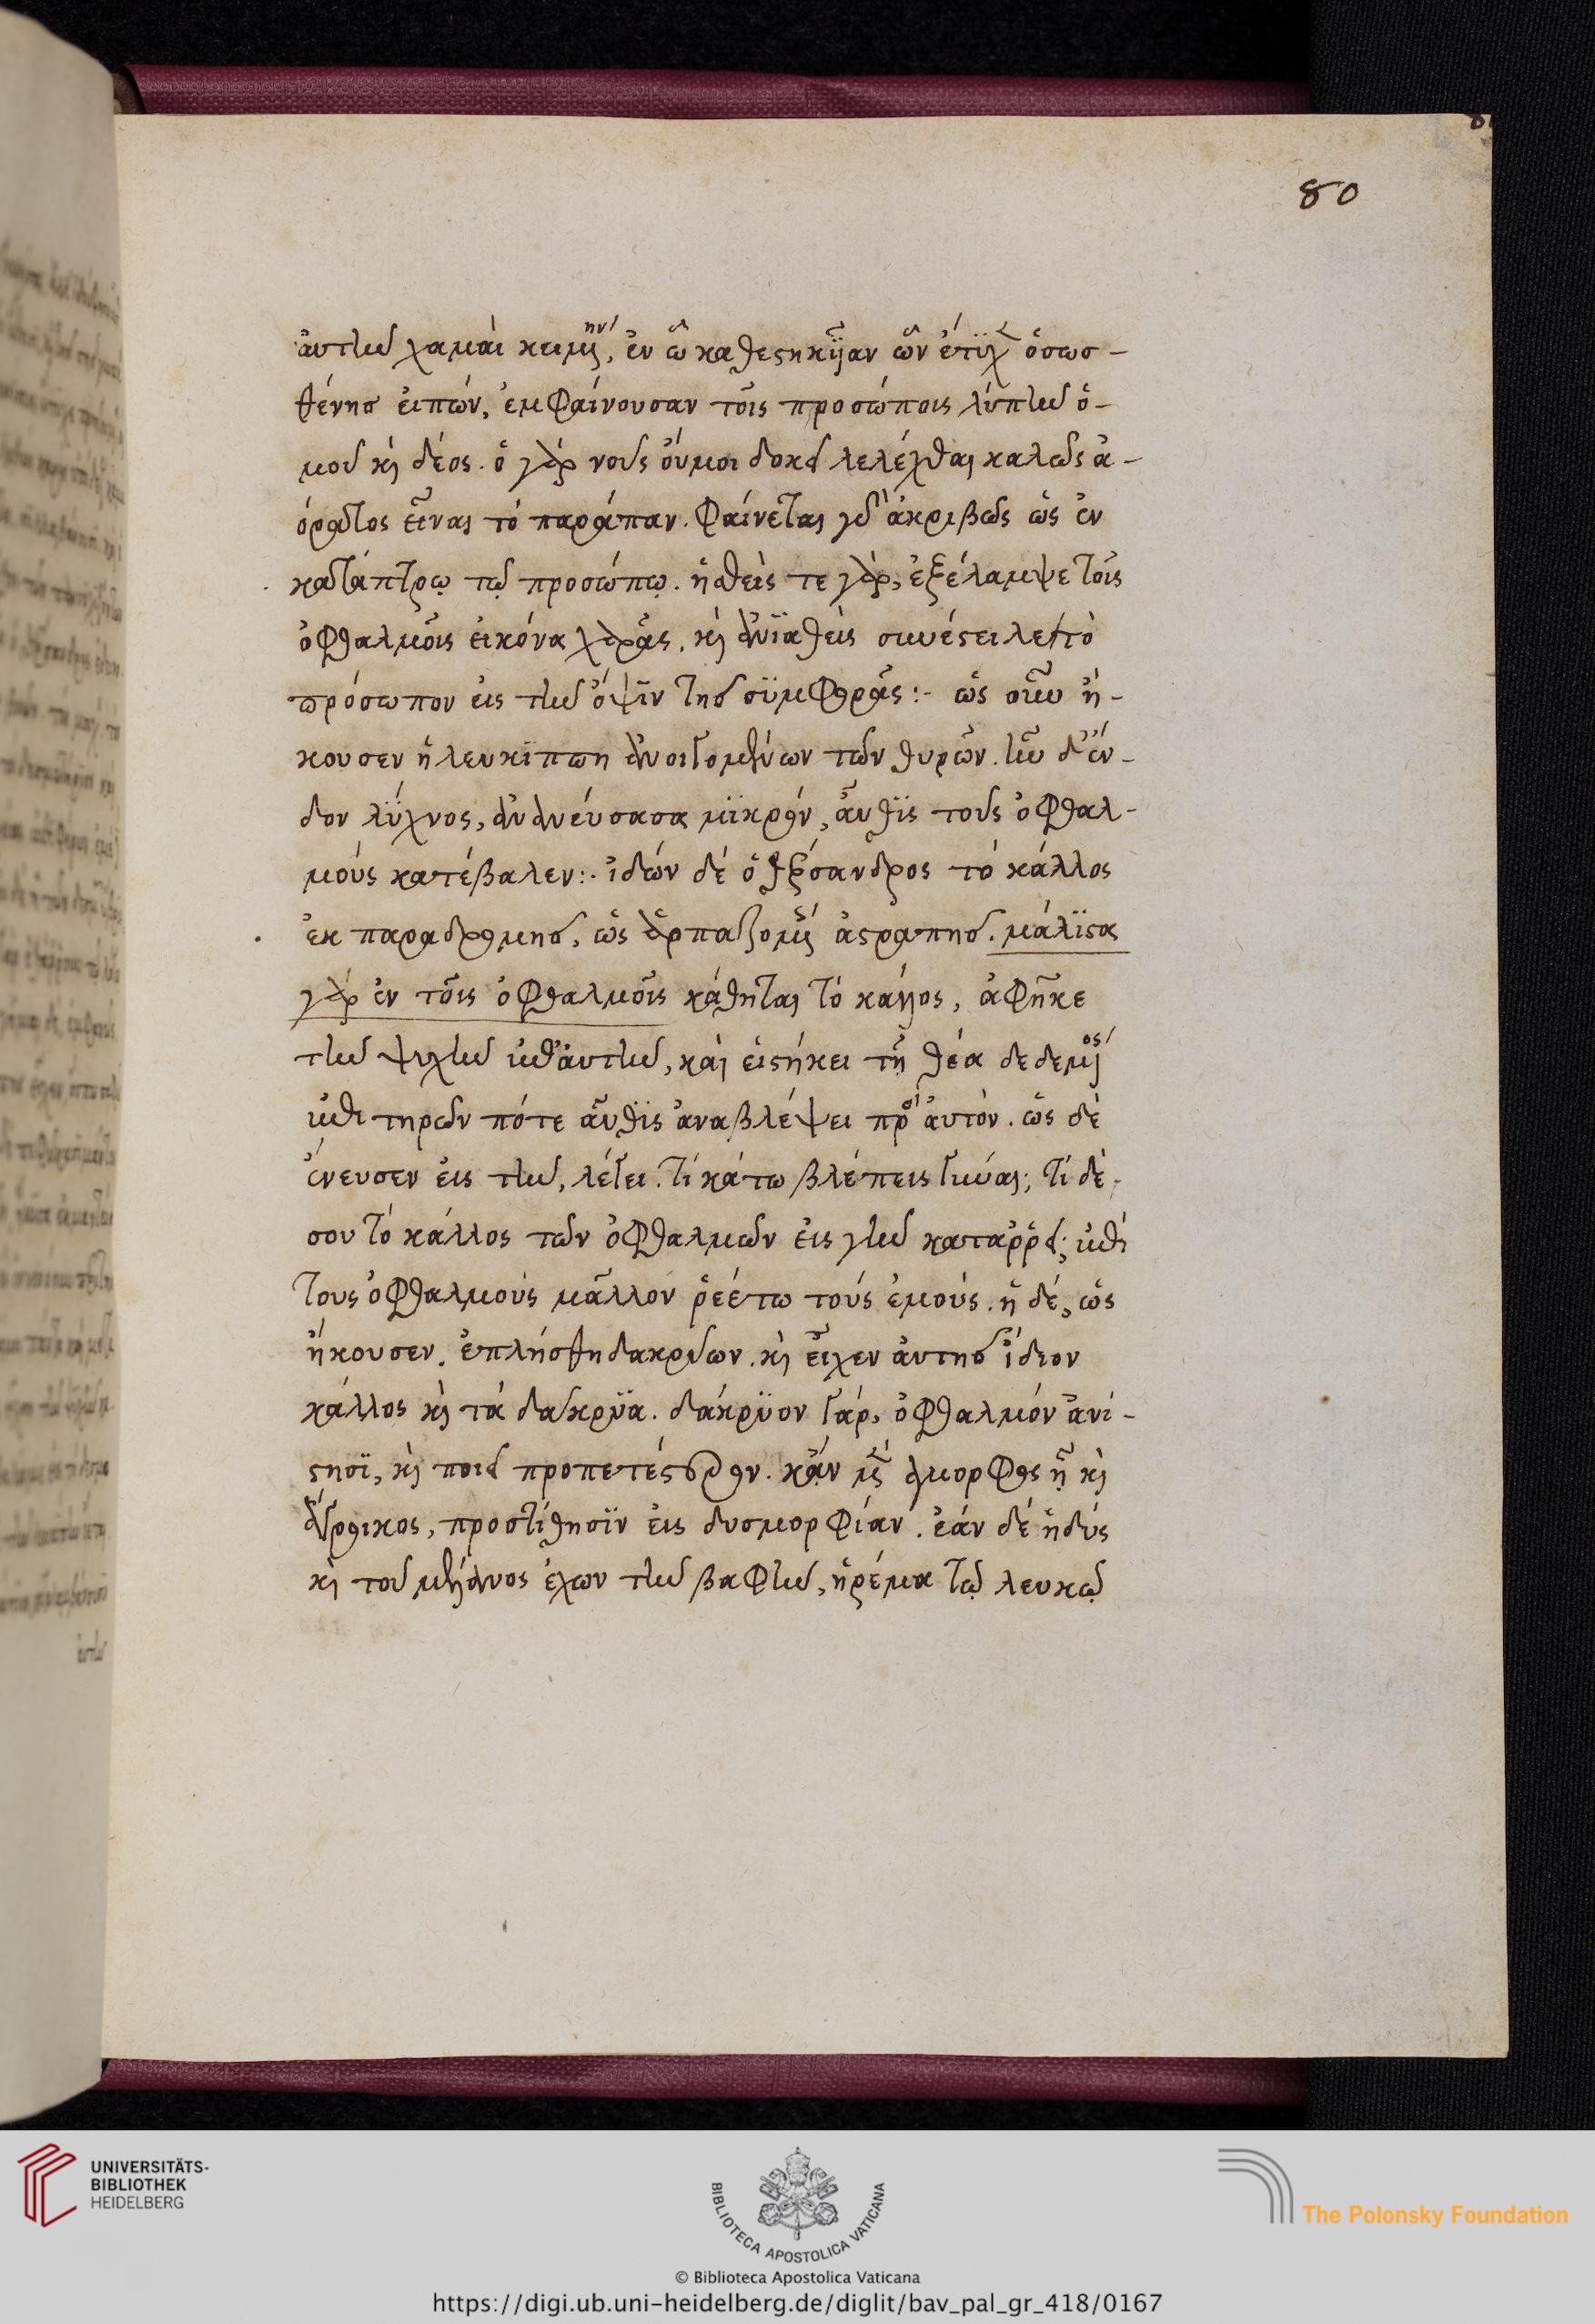 80
ἀυτὴν χαμαὶ κειμένην, ἐν ὧ καθεστηκυῖαν ὧν ἔτυχε ὁ σωσ-
θένης ἐιπών, ἐμφαίνουσαν τοῖς προσώποις λύπην ὁ-
μοῦ καὶ δέος. ὁ γὰρ νοῦς όύμοι δοκεῖ λελέχθαι καλῶς ἀ-
όρατος εἶναι τὸ παράπαν. φαίνεται γὰρ ἀκριβῶς ὡς ἐν
κατάπτρῳ τῷ προσώπῳ. ἡσθείς τε γὰρ, ἐξέλαμψε τοῖς
ὀφθαλμοῖς ἐικόνα χαρᾶς, καὶ ἀνϊαθεὶς συνέστειλε τὸ
πρόσωπον εἰς τὴν ὄψϊν τῆς σϋμφορᾶς :- ὡς οὖν ἤ-
κουσεν ἡ λευκίππη ἀνοιγομένων τῶν θυρῶν. ἦν δ' ἔν-
δον λύχνος, ἀνανεύσασα μϊκρὸν, ἆυθϊς τοὺς ὀφθαλ-
μοὺς κατέβαλεν :- ἰδὼν δὲ ὁ θέρσανδρος τὸ κάλλος
ἐκ παραδρομῆς, ὡς ἁρπαζομένης ἀστραπῆς. μάλϊστα
γὰρ ἐν τοῖς ὀφθαλμοῖς κάθηται τὸ κάλλος, ἀφῆκε
τὴν ψυχὴν ἐπ' ἀυτὴν, καὶ εἱστήκει τῇ θέα δεδεμένος
ἐπιτηρῶν πότε ἆυθϊς ἀναβλέψει πρὸς ἀυτόν. ὡς δὲ
ἔνευσεν ἐις τὴν, λέγει. τί κάτω βλέπεις γύναι; τί δέ
σου τὸ κάλλος τῶν ὀφθαλμῶν ἐις γῆν καταῤῥεῖ; ἐπὶ
τοὺς ὀφθαλμοὺς μᾶλλον ῥεέτω τοὺς ἐμούς. ἡ δὲ, ὡς
ἤκουσεν. ἐπλήσθη δακρύων. καὶ εἶχεν ἀυτῆς ἴδιον
κάλλος καὶ τὰ δάκρϋα. δάκρϋον γὰρ, ὀφθαλμὸν ἀνί-
στησϊ, καὶ ποιεῖ προπετέστερον. κἂν μὲν ἄμορφος ἦ καὶ
ἄγροικος, προστίθησϊν ἐις δυσμορφίαν. ἐὰν δὲ ἡδὺς
καὶ τοῦ μέλανος ἔχων τὴν βαφὴν, ἠρέμα τῷ λευκῷ
UNIVERSITÄTS-
BIBLIOTHEK
HEIDELBERG
BIBLIOTECA APOSTOLICA VATICANA
© Biblioteca Apostolica Vaticana
The Polonsky Foundation
https://digi.ub.uni-heidelberg.de/diglit/bav_pal_gr_418/0167